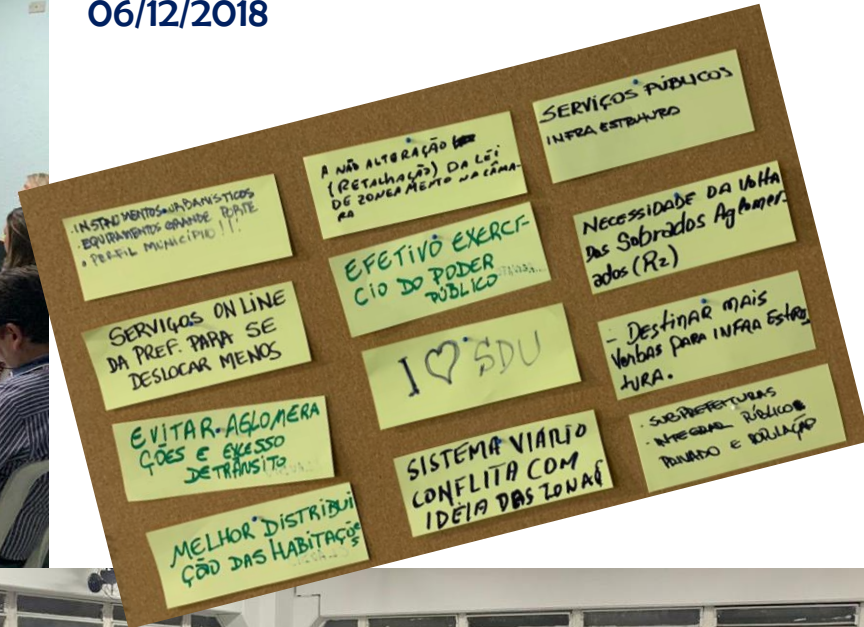 06/12/2018
• INSTRUMENTOS URBANISTICOS
• EQUIPAMENTOS GRANDE PORTE
• PERFIL MUNICÍPIO!!!
SERVIÇOS ON LINE
DA PREF. PARA SE
DESLOCAR MENOS
EVITAR AGLOMERA
ÇÕES E EXCESSO
DE TRÂNSITO
MELHOR DISTRIBUI
ÇÃO DAS HABITAÇÕES
A NÃO ALTERAÇÃO
(RETALHAÇÃO) DA LEI
DE ZONEAMENTO NA CÂMA-
RA
EFETIVO EXERCÍ-
CIO DO PODER
PÚBLICO
I ♡ SDU
SISTEMA VIÁRIO
CONFLITA COM
IDÉIA DAS ZONAS
SERVIÇOS PÚBLICOS
INFRA ESTRUTURA
NECESSIDADE DA VOLTA
Dos Sobrados Aglomer-
ados (R2)
- DESTINAR MAIS
Verbas PARA INFRA ESTRU
TURA.
• SUBPREFEITURAS
• INTEGRAR PÚBLICO
PRIVADO E POPULAÇÃO